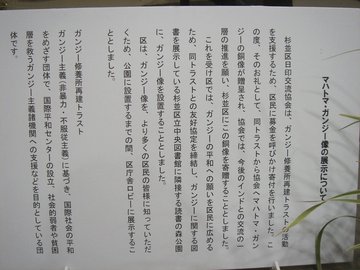 マハトマ・ガンジー像の展示について
杉並区日印交流協会は、ガンジー修養所再建トラストの活動
を支援するため、区民に募金を呼びかけ寄付を行いました。こ
の度、そのお礼として、同トラストから協会へマハトマ・ガン
ジーの銅像が贈呈され、協会では、今後のインドとの交流の一
層の推進を願い、杉並区にこの銅像を寄贈することとしました。
これを受け区では、ガンジーの平和への願いを区民に広める
ため、同トラストとの友好協定を締結し、ガンジーに関する図
書を展示している杉並区立中央図書館に隣接する読書の森公園
に、ガンジー像を設置することとしました。
区は、ガンジー像を、より多くの区民の皆様に知っていただ
くため、公園に設置するまでの間、区庁舎ロビーに展示するこ
ととしました。
ガンジー修養所再建トラスト
ガンジー主義(非暴力・不服従主義)に基づき、国際社会の平和
をめざす団体で、国際平和センターの設立、社会的弱者や貧困
層を救うガンジー主義諸機関への支援などを目的としている団
体です。